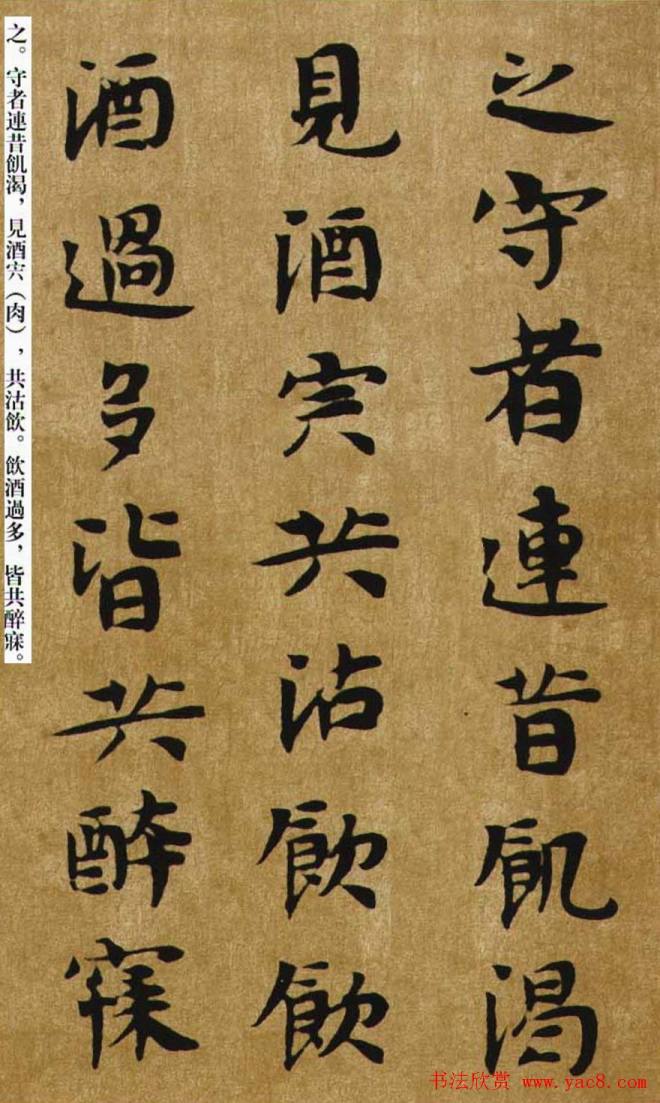 之守者連昔飢渴
見酒宍共沽飲飲
酒過多皆共醉寐
之。守者連昔飢渴，見酒宍（肉），共沽飲。飲酒過多，皆共醉寐。
书法欣赏 www.yac8.com